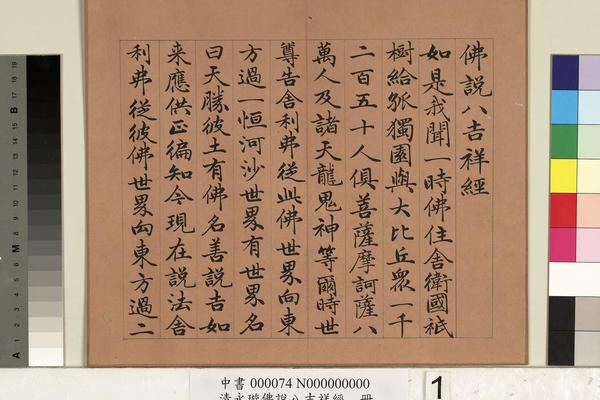 佛說八吉祥經
如是我聞一時佛住舍衛國祇
樹給孤獨園與大比丘眾一千
二百五十人俱菩薩摩訶薩八
萬人及諸天龍鬼神等爾時世
尊告舍利弗從此佛世界向東
方過一恒河沙世界有世界名
曰天勝彼土有佛名善說吉如
来應供正徧知今現在說法舍
利弗從彼佛世界向東方過二
中書 000074 N000000000
清永瑢佛說八吉祥經 冊
1